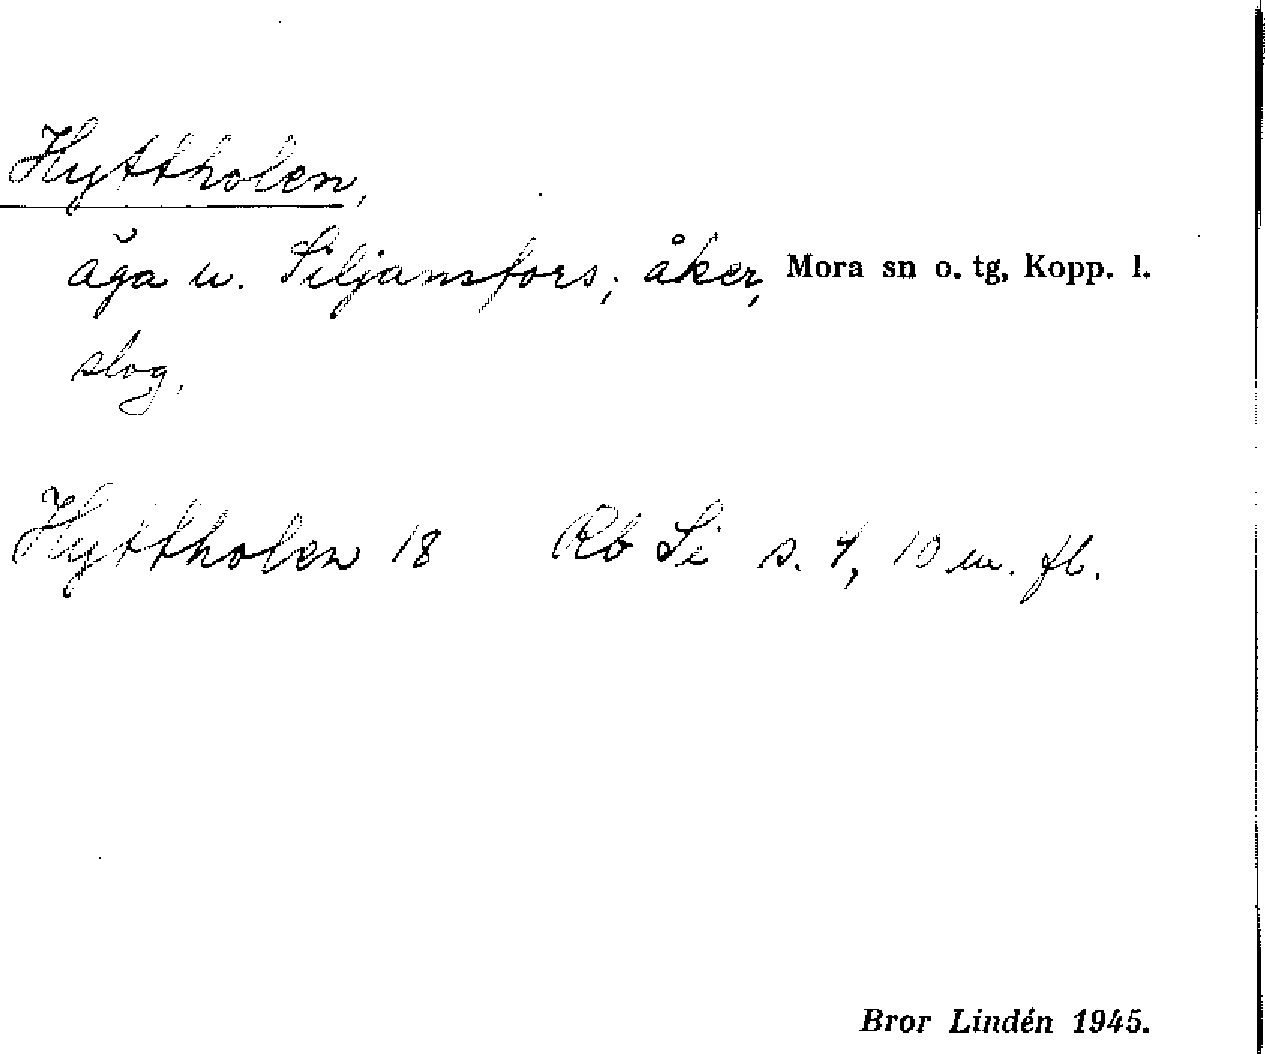 Hyttholen,
äga u. Siljansfors; åker, Mora sn o. tg, Kopp. l.
slog.
Hyttholen 18 Rb Si s. 4, 10 m. fl.
Bror Lindén 1945.